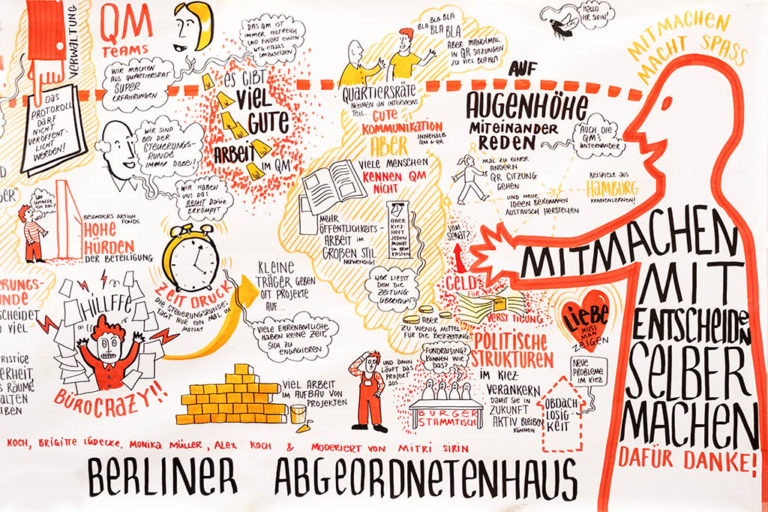 VERWALTUNG
QM
TEAMS
DAS
PROTOKOLL
DARF
NICHT
VERÖFFENT-
LICHT
WERDEN!
DAS QM IST
IMMER HILFREICH
UND FINDET EINEN
WEG ETWAS
UMZUSETZEN
WIR MACHEN
ALS QUARTIERSRAT
SUPER
ERFAHRUNGEN
WIR SIND
BEI DER
STEUERUNGS-
RUNDE
IMMER DABEI!
WIR HABEN
UNS DAS
RECHT DAFÜR
ERKÄMPFT
ES GIBT
VIEL
GUTE
ARBEIT
IM QM
BLA BLA BLA
BLA BLA
BLA
ABER MANCHMAL
IN QR SITZUNGEN
ZU VIEL BLABLA
HALLO
HR SIRIN!
QUARTIERSRÄTE
NEHMEN AN INTERVIEWS
TEIL
GUTE
KOMMUNIKATION
INNERHALB
QM & QR
ABER
VIELE MENSCHEN
KENNEN QM
NICHT
AUF
AUGENHÖHE
MITEINANDER
REDEN
AUCH DIE
QM'S
UNTEREINANDER
MAL ZU EINER
ANDERN
QR SITZUNG
GEHEN
UND NEUE
IDEEN BEKOMMEN
AUSTAUSCH HERSTELLEN
BEISPIELE AUS
HAMBURG
KENNENLERNEN!
MITMACHEN
MACHT SPASS
BESONDERS AKTION
FONDS
HOHE
HÜRDEN
DER BETEILIGUNG
MEHR
ÖFFENTLICHKEITS-
ARBEIT IM
GROßEN STIL
NOTWENDIG!
ABER
KIEZ-
HEFT
JEDEN
MONAT
IN DEN
KÄSTEN
WER LIEST
DENN DIE
ZEITUNG
ÜBERHAUPT?
ZEITDRUCK
DIE STEUERUNGSRUNDE
TAGT NUR EIN MAL IM
MONAT
KLEINE
TRÄGER GEBEN
OFT PROJEKTE
AUF
VIELE EHRENAMTLICHE
HABEN KEINE ZEIT,
SICH ZU
ENGAGIEREN
VOM
SENAT?
GELD
FÜR
VERSTETIGUNG
ABER
ZU WENIG MITTEL
FÜR DIE KIEZZEITUNG!
HILLFFE
BÜROCRAZY!!
VIEL ARBEIT
IM AUFBAU VON
PROJEKTEN
UND DANN
LÄUFT DAS
PROJEKT
AUS
FUNDRAISING?
KÖNNEN WIR
DAS?
BÜRGER
STAMMTISCH
POLITISCHE
STRUKTUREN
IM KIEZ
VERANKERN
DAMIT SIE IN
ZUKUNFT
AKTIV BLEIBEN
KÖNNEN
LIEBE
MUSS
MAN
ZEIGEN
NEUE
PROBLEME
IM KIEZ
OBDACH
LOSIG-
KEIT
MITMACHEN
MIT
ENTSCHEIDEN
SELBER
MACHEN
DAFÜR DANKE!
KOCH, BRIGITTE LÜDECKE, MONIKA MÜLLER, ALEX KOCH & MODERIERT VON MITRI SIRIN
BERLINER ABGEORDNETENHAUS